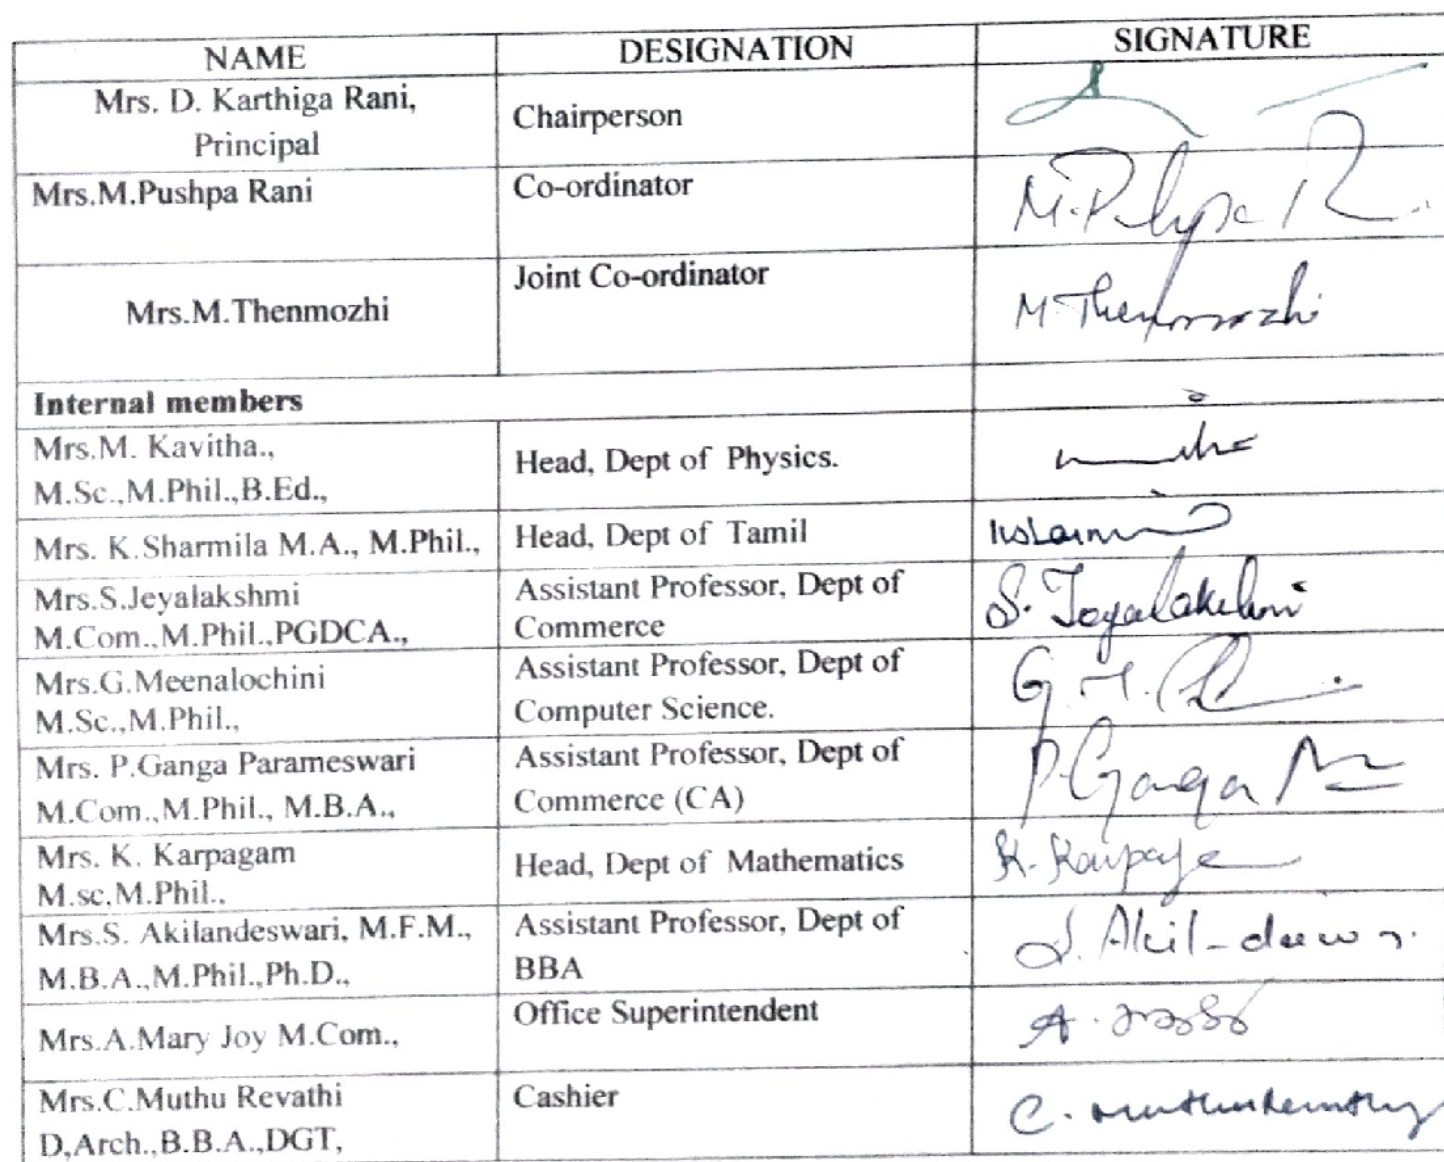 NAME DESIGNATION SIGNATURE
Mrs. D. Karthiga Rani,
Principal
Chairperson
Mrs.M.Pushpa Rani
Co-ordinator
M.Pushpa R
Mrs.M.Thenmozhi
Joint Co-ordinator
M.Thenmozhi
Internal members
Mrs.M. Kavitha.,
M.Sc.,M.Phil.,B.Ed.,
Head, Dept of Physics.
Mrs. K.Sharmila M.A., M.Phil.,
Head, Dept of Tamil
Mrs.S.Jeyalakshmi
M.Com.,M.Phil.,PGDCA.,
Assistant Professor, Dept of
Commerce
S. Jeyalakshmi
Mrs.G.Meenalochini
M.Sc.,M.Phil.,
Assistant Professor, Dept of
Computer Science.
Mrs. P.Ganga Parameswari
M.Com.,M.Phil., M.B.A.,
Assistant Professor, Dept of
Commerce (CA)
P.Ganga
Mrs. K. Karpagam
M.sc,M.Phil.,
Head, Dept of Mathematics
K. Karpaga
Mrs.S. Akilandeswari, M.F.M.,
M.B.A.,M.Phil.,Ph.D.,
Assistant Professor, Dept of
BBA
Mrs.A.Mary Joy M.Com.,
Office Superintendent
Mrs.C.Muthu Revathi
D,Arch.,B.B.A.,DGT,
Cashier